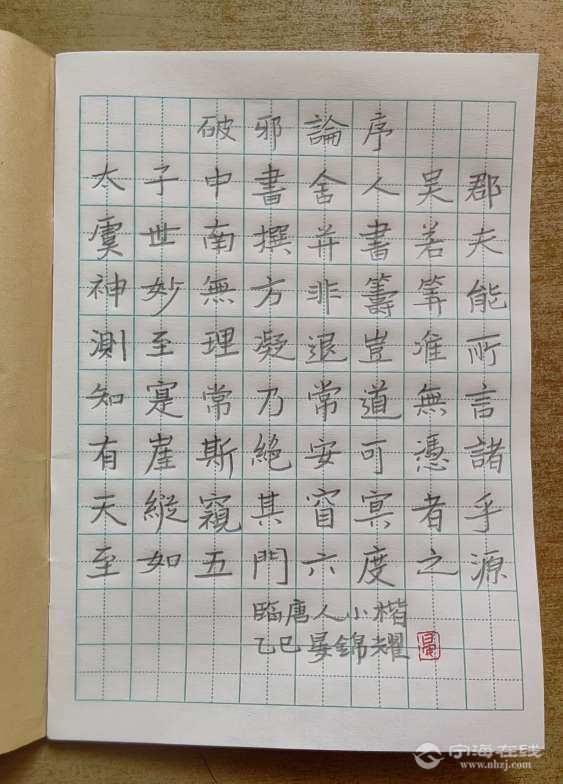 破邪論序
太子中書舍人吴郡
虞世南撰并書若夫
神妙無方非籌筭能
測至理凝退豈准所
知寔常乃常道無言
有崖斯絕安可憑諸
天縱窺其窅冥者乎
至如五門六度之源
臨唐人小楷
乙巳晏錦耀
宁海在线
www.nhzj.com